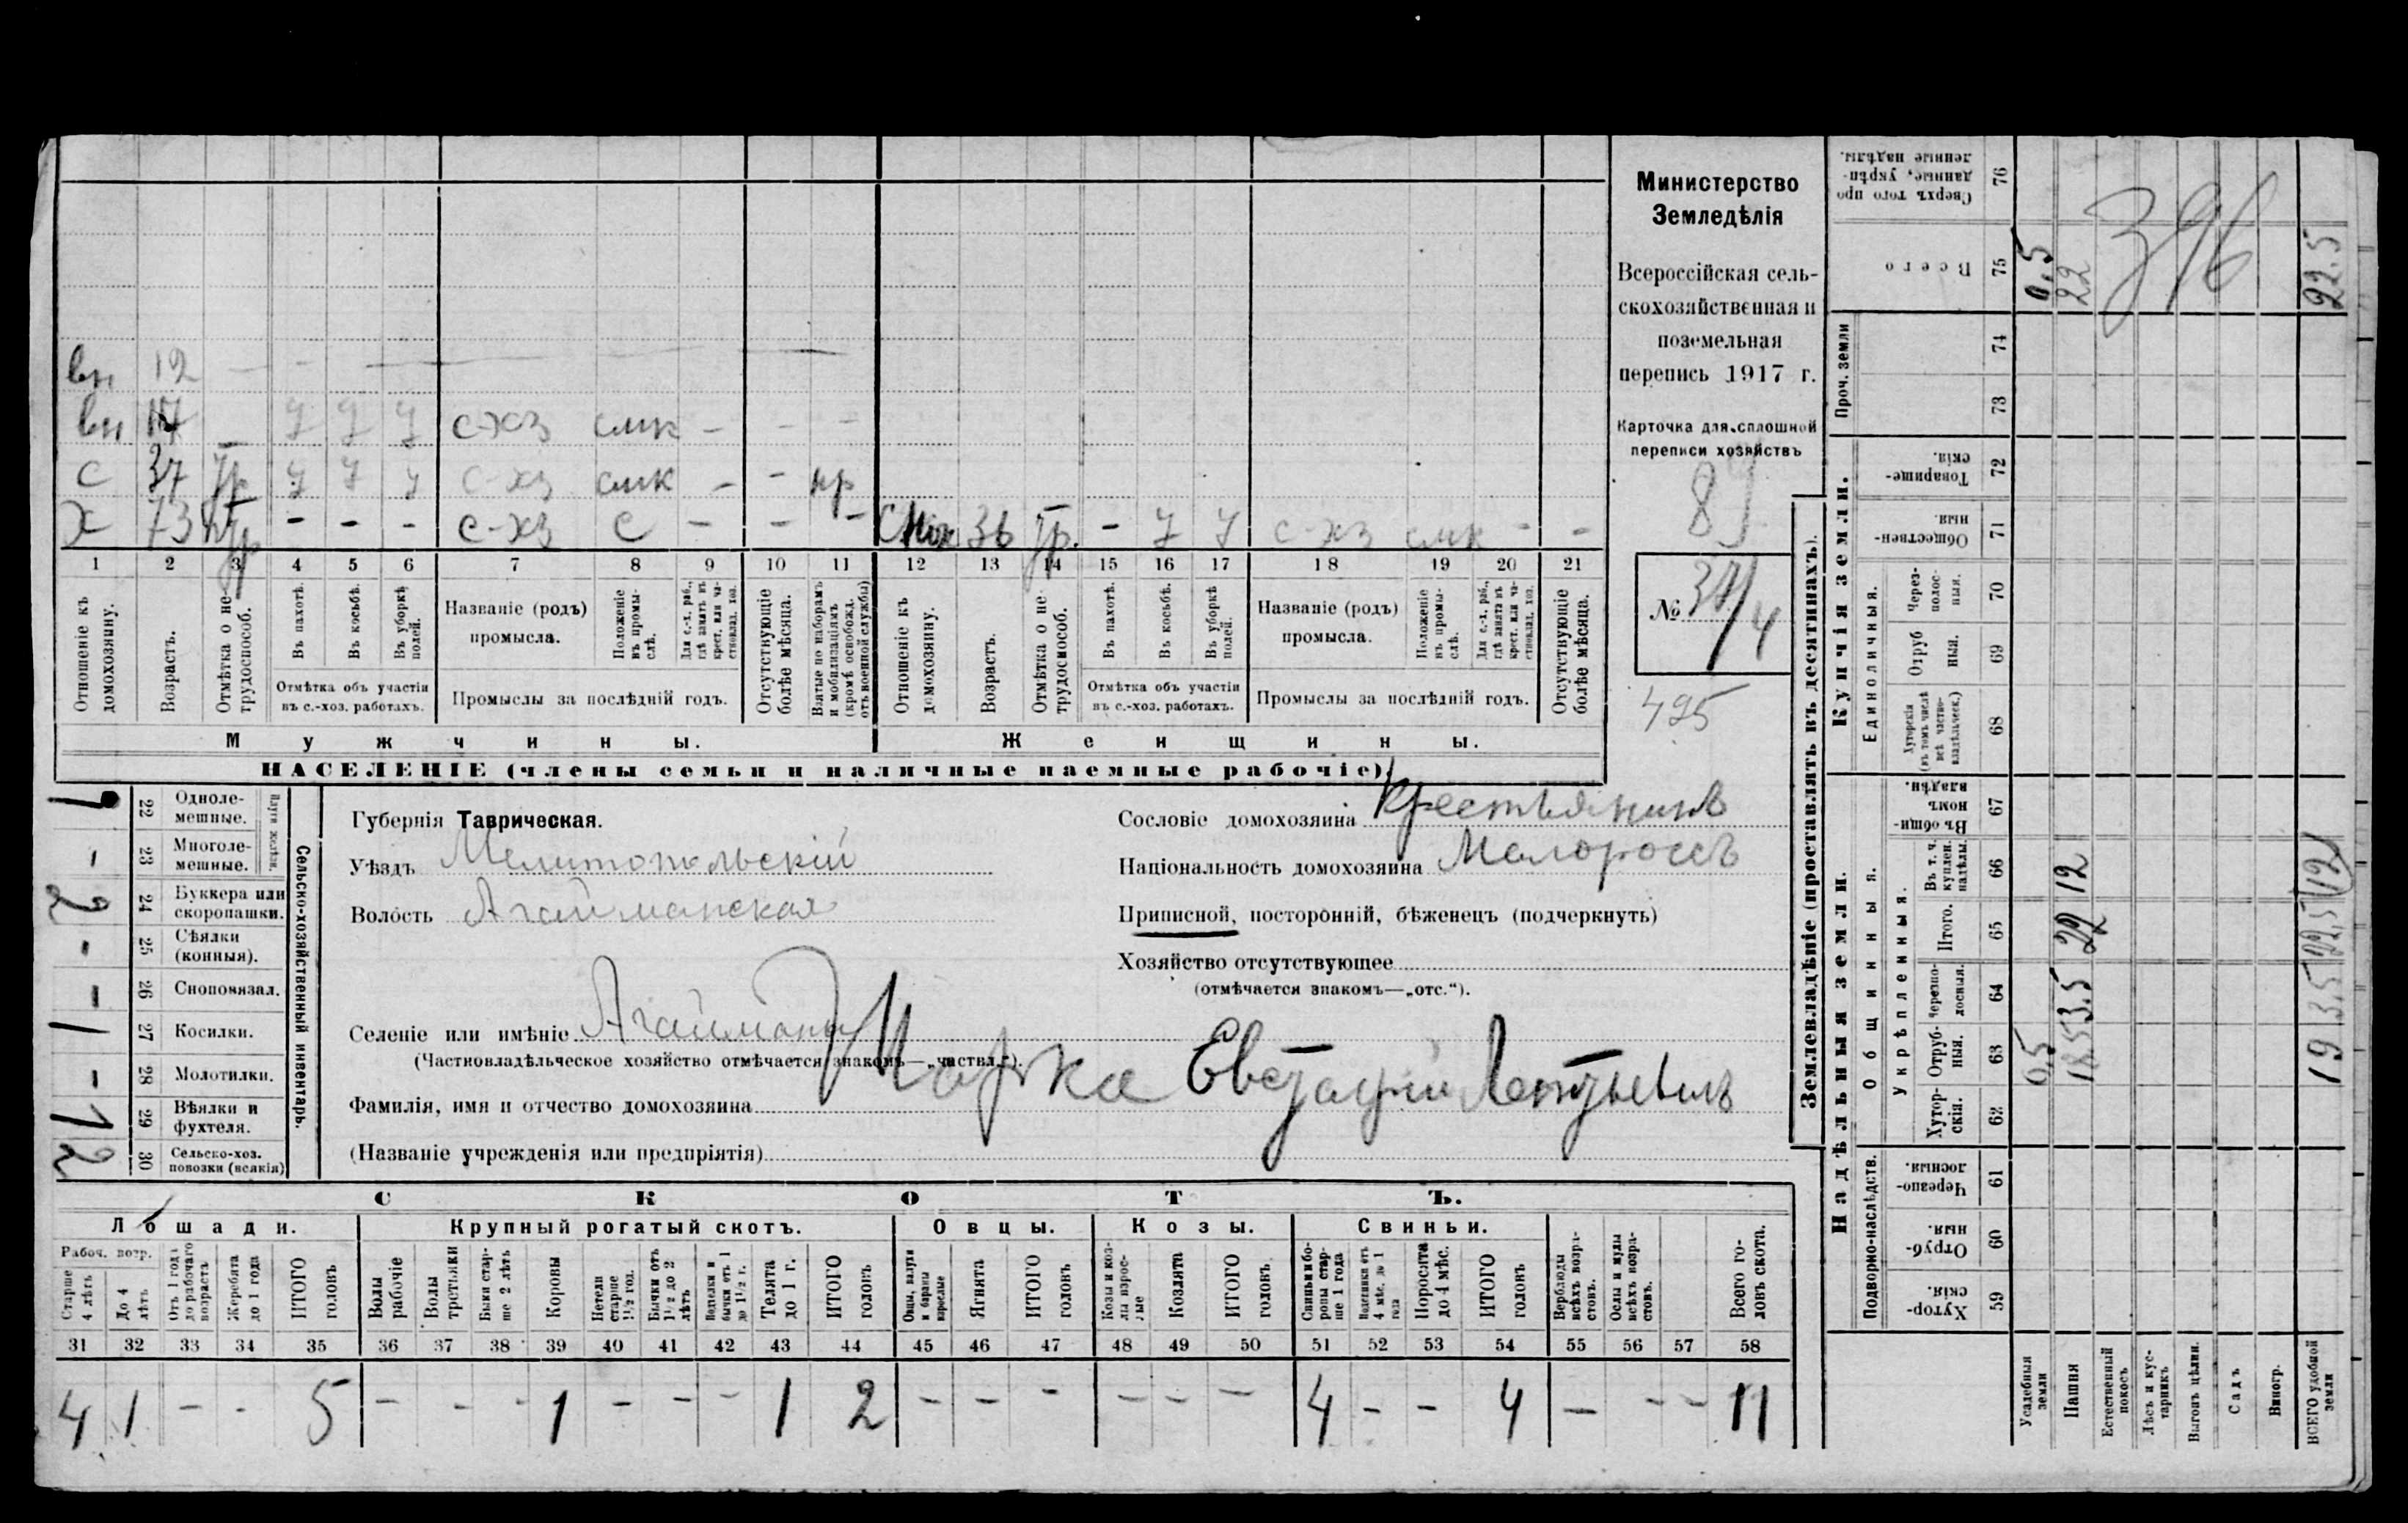 Министерство
Земледѣлія
Всероссійская сель-
скохозяйственная и
поземельная
перепись 1917 г.
Карточка для сплошной
переписи хозяйствъ
89
№ /4
495
вн 12 — — —
вн 17 – у у у с-хз смк – – –
с 37 тр у у у с-хз смк – – нр
х 73 – – – с-хз с – – – 36 тр. – у у с-хз смк – –
1 2 3 4 5 6 7 8 9 10 11 12 13 14 15 16 17 18 19 20 21
Отношеніе къ домохозяину.
Возрастъ.
Отмѣтка о не-трудоспособ.
Въ пахотѣ.
Въ косьбѣ.
Въ уборкѣ полей.
Отмѣтка объ участіи
въ с.-хоз. работахъ.
Названіе (родъ)
промысла.
Положеніе въ промы-слѣ.
Для с.-х. раб., гдѣ занятъ въ крест. или ча-стновлад. хоз.
Промыслы за послѣдній годъ.
Отсутствующіе болѣе мѣсяца.
Взятые по наборамъ и мобилизаціямъ (кромѣ освобожд. отъ военной службы)
Отношеніе къ домохозяину.
Возрастъ.
Отмѣтка о не-трудоспособ.
Въ пахотѣ.
Въ косьбѣ.
Въ уборкѣ полей.
Отмѣтка объ участіи
въ с.-хоз. работахъ.
Названіе (родъ)
промысла.
Положеніе въ промы-слѣ.
Для с.-х. раб., гдѣ занята въ крест. или ча-стновлад. хоз.
Промыслы за послѣдній годъ.
Отсутствующіе болѣе мѣсяца.
Мужчины. Женщины.
НАСЕЛЕНІЕ (члены семьи и наличные наемные рабочіе).
Сельско-хозяйственный инвентарь.
1 22 Одноле-мешные.
– 23 Многоле-мешные.
2 24 Буккера или скоропашки.
– 25 Сѣялки (конныя).
– 26 Сноповязал.
1 27 Косилки.
– 28 Молотилки.
1 29 Вѣялки и фухтеля.
2 30 Сельско-хоз. повозки (всякія)
Губернія Таврическая.
Уѣздъ Мелитопольскій
Волость Агайманская
Сословіе домохозяина Крестьянинъ
Національность домохозяина Малороссъ
Приписной, посторонній, бѣженецъ (подчеркнуть)
Хозяйство отсутствующее
(отмѣчается знакомъ—„отс.“).
Селеніе или имѣніе Агайманы
(Частновладѣльческое хозяйство отмѣчается знакомъ—„частвл.“).
Фамилія, имя и отчество домохозяина
(Названіе учрежденія или предпріятія)
СКОТЪ.
Лошади. Крупный рогатый скотъ. Овцы. Козы. Свиньи.
Рабоч. возр.
Старше 4 лѣтъ
До 4 лѣтъ
Отъ 1 года до рабочаго возраста
Жеребята до 1 года
ИТОГО головъ
Волы рабочіе
Волы третьяки
Быки стар-ше 2 лѣтъ
Коровы
Нетели старше 1½ год.
Бычки отъ 1½ до 2 лѣтъ
Нетелки и бычки отъ 1 до 1½ г.
Телята до 1 г.
ИТОГО головъ
Овцы, валухи и бараны взрослые
Ягнята
ИТОГО головъ
Козы и коз-лы взрос-лые
Козлята
ИТОГО головъ.
Свиньи и бо-ровы стар-ше 1 года
Подсвинки отъ 4 мѣс. до 1 года
Поросята до 4 мѣс.
ИТОГО головъ
Верблюды всѣхъ возра-стовъ.
Ослы и мулы всѣхъ возра-стовъ.
Всего го-ловъ скота.
31 32 33 34 35 36 37 38 39 40 41 42 43 44 45 46 47 48 49 50 51 52 53 54 55 56 57 58
4 1 – – 5 – – – 1 – – – 1 2 – – – – – – 4 – – 4 – – – 11
Землевладѣніе (проставлять въ десятинахъ).
Купчія земли.
Надѣльныя земли.
Сверхъ того про данные, укрѣп-ленные надѣлы. 76
Всего 75 0,5 22 22.5
396
Проч. земли 74 73
Товарище-скія. 72
Обществен-ныя. 71
Единоличныя.
Через-полос-ныя. 70
Отруб ныя. 69
Хуторскія (въ томъ числѣ всѣ частно-владѣльческ.) 68
Общинныя.
Въ общи-номъ владѣн. 67
Укрѣпленныя.
Въ т. ч. куплен. надѣлы. 66 12 12
Итого. 65 22 22,5
Черезпо-лосныя. 64 3.5 3.5
Отруб-ныя. 63 0,5 18.5 19
Хутор-скія. 62
Подворно-наслѣдств.
Черезпо-лосныя. 61
Отруб-ныя. 60
Хутор-скія. 59
Усадебныя земли
Пашня
Естественный покосъ
Лѣсъ и кус-тарникъ
Выгонъ цѣлин.
Садъ
Виногр.
ВСЕГО удобной земли